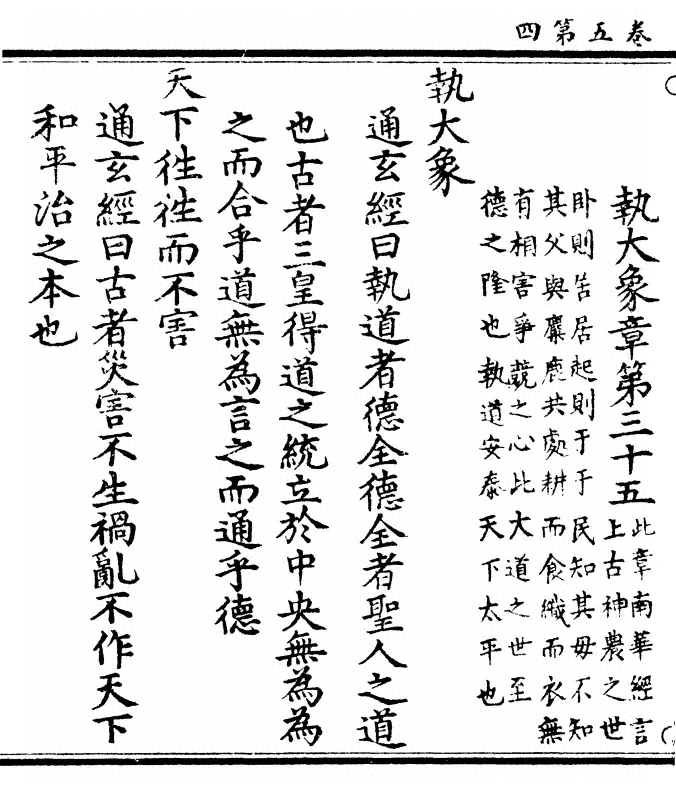 卷五第四
執大象章第三十五
此章南華經言
上古神農之世
卧則㞐居起則于于民知其毋不知
其父與麋鹿共處耕而食織而衣無
有相害爭競之心比大道之世至
德之隆也執道安泰天下太平也
執大象
通玄經曰執道者德全德全者聖人之道
也古者三皇得道之統立於中央無為為
之而合乎道無為言之而通乎德
天下徃徃而不害
通玄經曰古者災害不生禍亂不作天下
和平治之本也